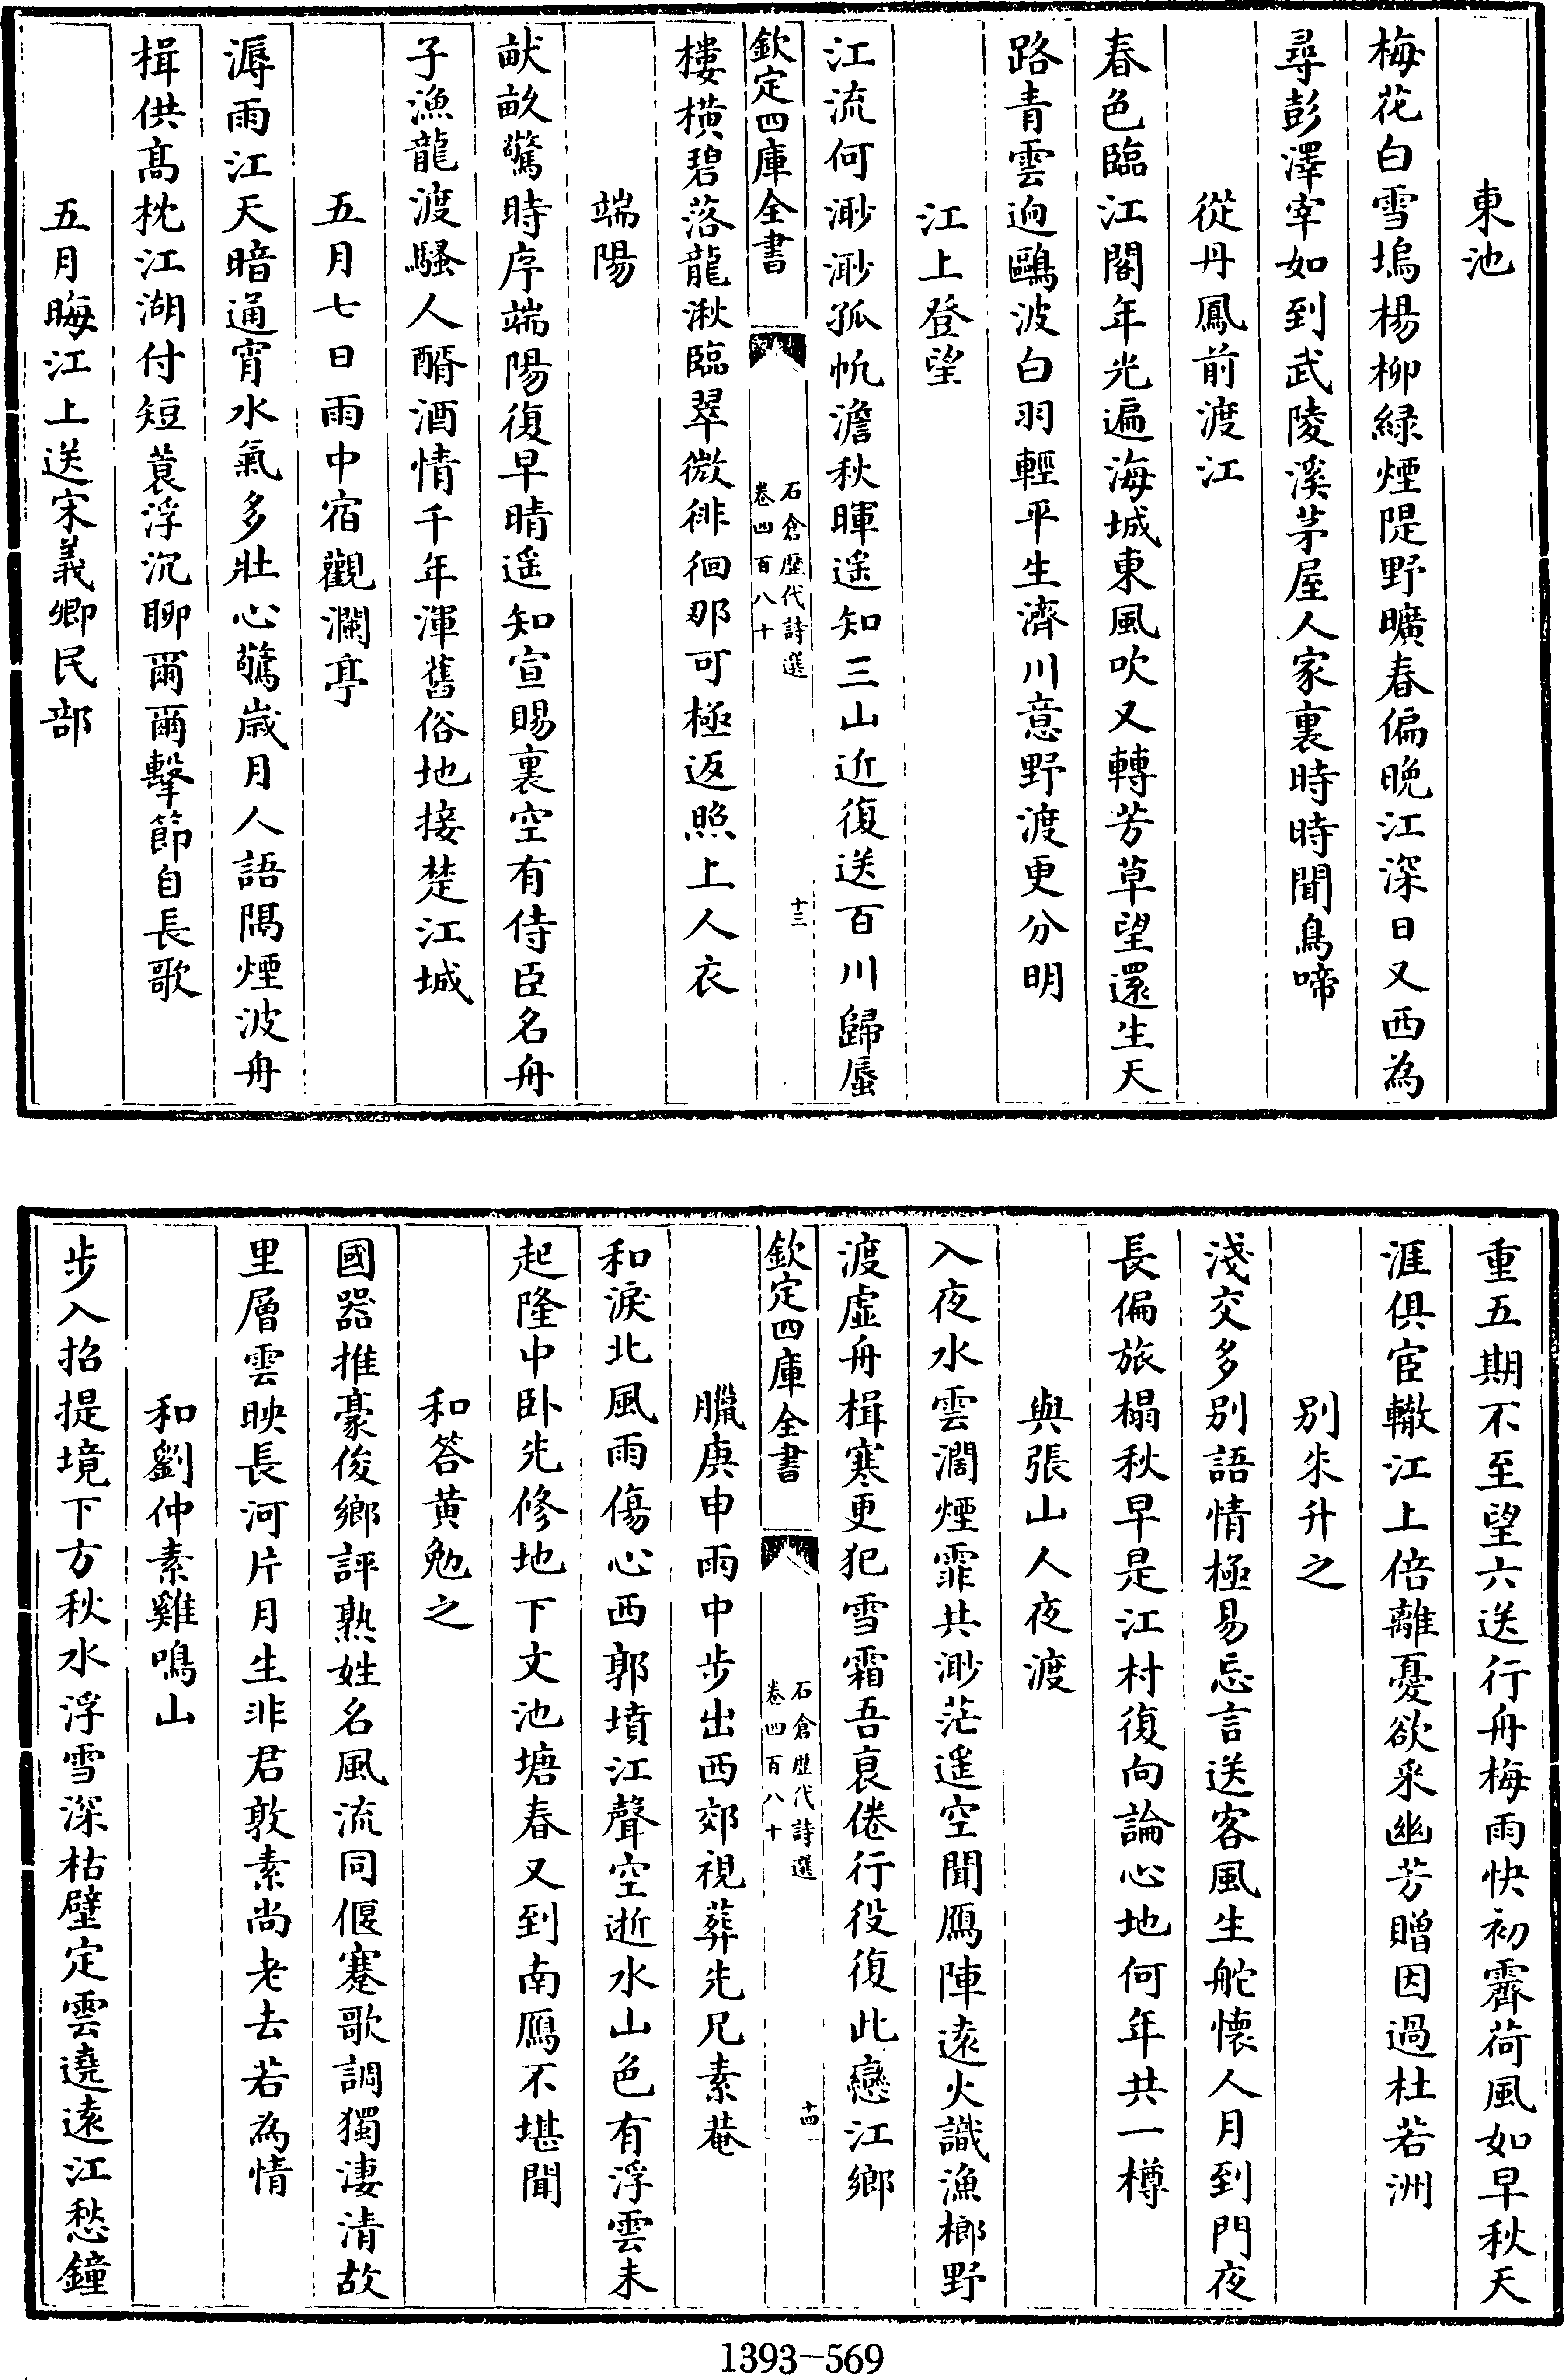 東池
梅花白雪塢楊柳緑煙隄野曠春偏晩江深日又西為
尋彭澤宰如到武陵溪茅屋人家裏時時聞鳥啼
從丹鳳前渡江
春色臨江閣年光遍海城東風吹又轉芳草望還生天
路青雲逈鷗波白羽輕平生濟川意野渡更分明
江上登望
江流何渺渺孤帆澹秋暉遥知三山近復送百川歸蜃
欽定四庫全書
石倉歴代詩選
卷四百八十
十三
樓横碧落龍湫臨翠微徘徊那可極返照上人衣
端陽
畎畝驚時序端陽復早晴遥知宣賜裏空有侍臣名舟
子漁龍渡騷人醑酒情千年渾舊俗地接楚江城
五月七日雨中宿觀瀾亭
溽雨江天暗通宵水氣多壯心驚歳月人語隅煙波舟
楫供髙枕江湖付短蓑浮沉聊爾爾擊節自長歌
五月晦江上送宋義卿民部
重五期不至望六送行舟梅雨快初霽荷風如早秋天
涯俱宦轍江上倍離憂欲采幽芳贈因過杜若洲
别朱升之
淺交多别語情極易忘言送客風生舵懷人月到門夜
長偏旅榻秋早是江村復向論心地何年共一樽
與張山人夜渡
入夜水雲濶煙霏共渺茫遥空聞鴈陣逺火識漁榔野
渡虚舟楫寒更犯雪霜吾哀倦行役復此戀江鄉
欽定四庫全書
石倉歴代詩選
卷四百八十
十四
臘庚申雨中步出西郊視葬先兄素菴
和淚北風雨傷心西郭墳江聲空逝水山色有浮雲未
起隆中卧先修地下文池塘春又到南鴈不堪聞
和答黄勉之
國器推豪俊鄉評熟姓名風流同偃蹇歌調獨淒清故
里層雲映長河片月生非君敦素尚老去若為情
和劉仲素雞鳴山
步入招提境下方秋水浮雪深枯壁定雲遶逺江愁鐘
1393-569